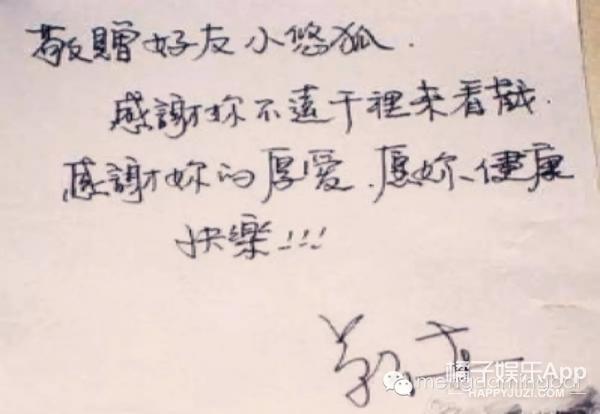 敬贈好友小悠狐.
感謝妳不遠千裡來看戲.
感謝妳的厚愛.愿妳健康
快樂!!!
橘子娱乐App
HAPPYJUZI.COM